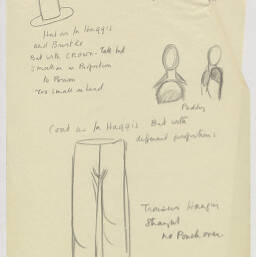 Hat as in Haggis
and Bruske
But with CROWN. Tall but
Small in in Proportion
to Person
Too small in head
Padding
Coat as in Haggis But with
different proportions
Trousers Hanging
Straight
no Pouch over